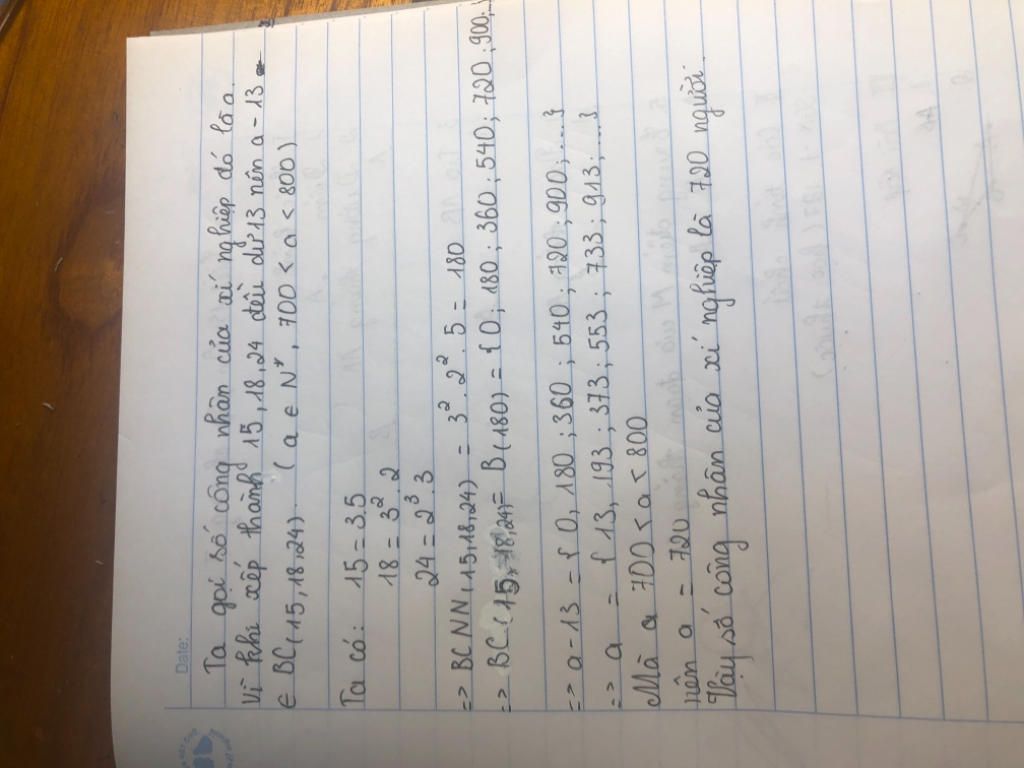 Date:
Ta gọi số công nhân của xí nghiệp đó là a.
Vì khi xếp thành 15, 18, 24 đều dư 13 nên a - 13
∈ BC(15,18,24). (a ∈ N*, 700 < a < 800)
Ta có: 15 = 3.5
18 = 3².2
24 = 2³.3
=> BCNN(15,18,24) = 3².2².5 = 180
=> BC(15,18,24) = B(180) = {0; 180; 360; 540; 720; 900;...}
=> a-13 = {0, 180; 360; 540; 720; 900; ...}
=> a = {13, 193; 373; 553; 733; 913; ...}
Mà a 700 < a < 800
nên a = 720
Vậy số công nhân của xí nghiệp là 720 người.